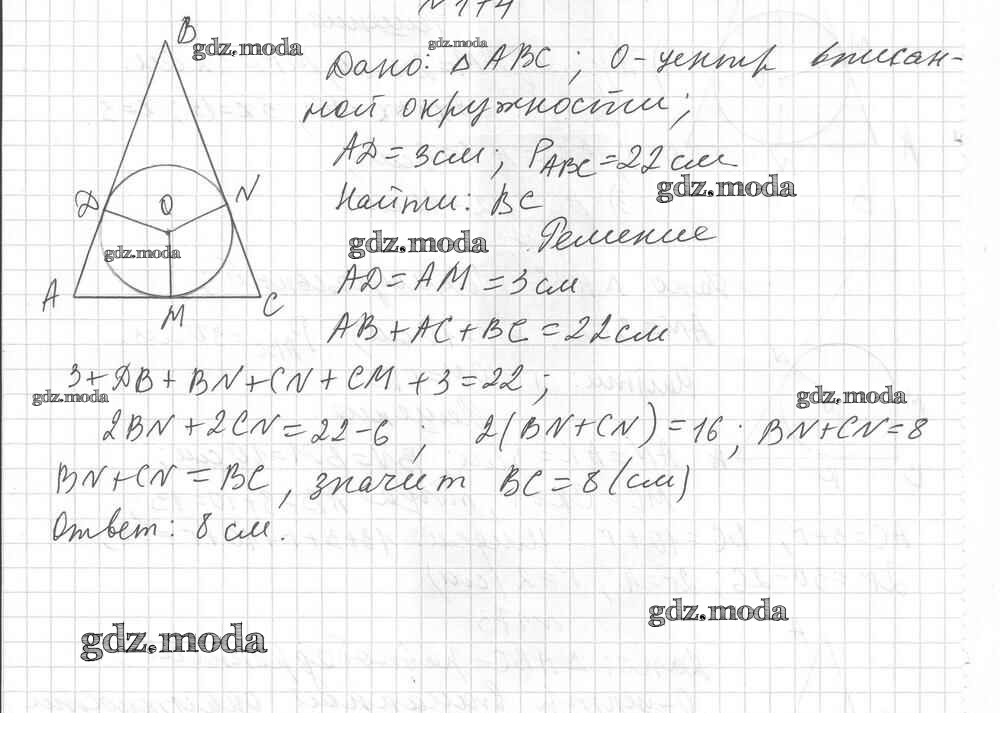 № 174
B
Дано: △ ABC ; O - центр вписан-
ной окружности ;
AD = 3 см ; P ABC = 22 см
Найти: BC
Решение
D O N
A M C
AD = AM = 3 см
AB + AC + BC = 22 см
3 + DB + BN + CN + CM + 3 = 22 ;
2BN + 2CN = 22 - 6 ; 2(BN + CN) = 16 ; BN + CN = 8
BN + CN = BC , значит BC = 8 (см)
Ответ: 8 см.
gdz.moda
gdz.moda
gdz.moda
gdz.moda
gdz.moda
gdz.moda
gdz.moda
gdz.moda
gdz.moda